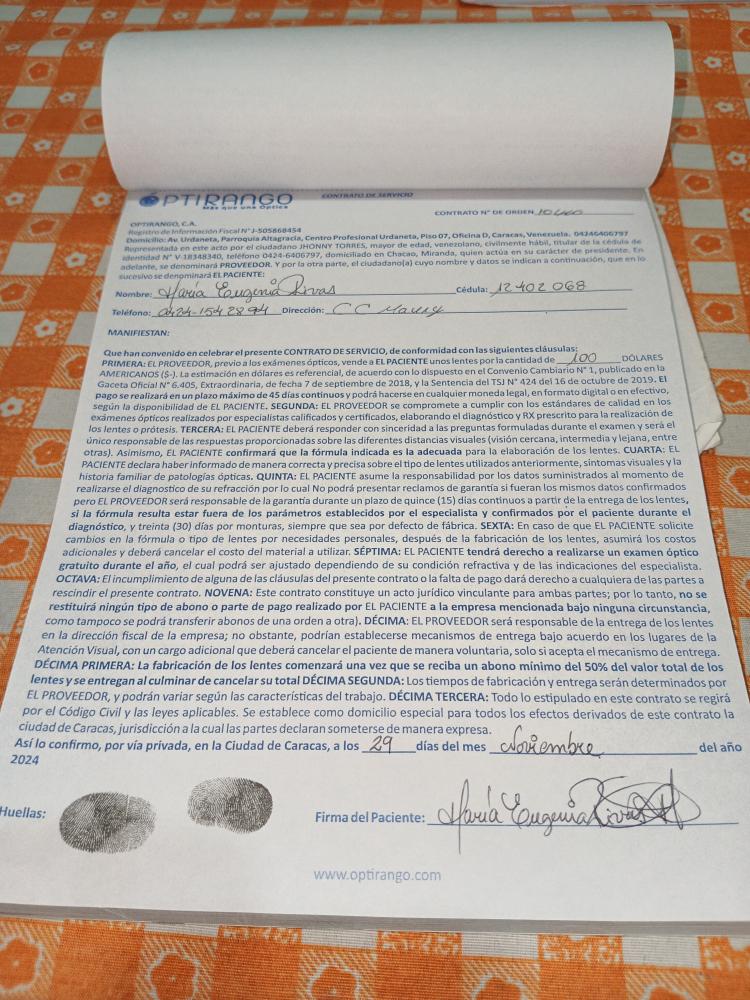 OPTIRANGO
Más que una Óptica
CONTRATO DE SERVICIO
CONTRATO N° DE ORDEN
OPTIRANGO, C.A.
Registro de Información Fiscal N° J-505868454
Domicilio: Av. Urdaneta, Parroquia Altagracia, Centro Profesional Urdaneta, Piso 07, Oficina D, Caracas, Venezuela. 04246406797
Representada en este acto por el ciudadano JHONNY TORRES, mayor de edad, venezolano, civilmente hábil, titular de la cédula de
identidad N° V-18348340, teléfono 0424-6406797, domiciliado en Chacao, Miranda, quien actúa en su carácter de presidente. En
adelante, se denominará PROVEEDOR. Y por la otra parte, el ciudadano(a) cuyo nombre y datos se indican a continuación, que en lo
sucesivo se denominará EL PACIENTE:
Nombre: María Eugenia Rivas Cédula: 12402068
Teléfono: 0424-1542894 Dirección: CC
MANIFIESTAN:
Que han convenido en celebrar el presente CONTRATO DE SERVICIO, de conformidad con las siguientes cláusulas:
PRIMERA: EL PROVEEDOR, previo a los exámenes ópticos, vende a EL PACIENTE unos lentes por la cantidad de 100 DÓLARES
AMERICANOS ($-). La estimación en dólares es referencial, de acuerdo con lo dispuesto en el Convenio Cambiario N° 1, publicado en la
Gaceta Oficial N° 6.405, Extraordinaria, de fecha 7 de septiembre de 2018, y la Sentencia del TSJ N° 424 del 16 de octubre de 2019. El
pago se realizará en un plazo máximo de 45 días continuos y podrá hacerse en cualquier moneda legal, en formato digital o en efectivo,
según la disponibilidad de EL PACIENTE. SEGUNDA: EL PROVEEDOR se compromete a cumplir con los estándares de calidad en los
exámenes ópticos realizados por especialistas calificados y certificados, elaborando el diagnóstico y RX prescrito para la realización de
los lentes o prótesis. TERCERA: EL PACIENTE deberá responder con sinceridad a las preguntas formuladas durante el examen y será el
único responsable de las respuestas proporcionadas sobre las diferentes distancias visuales (visión cercana, intermedia y lejana, entre
otras). Asimismo, EL PACIENTE confirmará que la fórmula indicada es la adecuada para la elaboración de los lentes. CUARTA: EL
PACIENTE declara haber informado de manera correcta y precisa sobre el tipo de lentes utilizados anteriormente, síntomas visuales y la
historia familiar de patologías ópticas. QUINTA: EL PACIENTE asume la responsabilidad por los datos suministrados al momento de
realizarse el diagnostico de su refracción por lo cual No podrá presentar reclamos de garantía si fueran los mismos datos confirmados
pero EL PROVEEDOR será responsable de la garantía durante un plazo de quince (15) días continuos a partir de la entrega de los lentes,
si la fórmula resulta estar fuera de los parámetros establecidos por el especialista y confirmados por el paciente durante el
diagnóstico, y treinta (30) días por monturas, siempre que sea por defecto de fábrica. SEXTA: En caso de que EL PACIENTE solicite
cambios en la fórmula o tipo de lentes por necesidades personales, después de la fabricación de los lentes, asumirá los costos
adicionales y deberá cancelar el costo del material a utilizar. SÉPTIMA: EL PACIENTE tendrá derecho a realizarse un examen óptico
gratuito durante el año, el cual podrá ser ajustado dependiendo de su condición refractiva y de las indicaciones del especialista.
OCTAVA: El incumplimiento de alguna de las cláusulas del presente contrato o la falta de pago dará derecho a cualquiera de las partes a
rescindir el presente contrato. NOVENA: Este contrato constituye un acto jurídico vinculante para ambas partes; por lo tanto, no se
restituirá ningún tipo de abono o parte de pago realizado por EL PACIENTE a la empresa mencionada bajo ninguna circunstancia,
como tampoco se podrá transferir abonos de una orden a otra). DÉCIMA: EL PROVEEDOR será responsable de la entrega de los lentes
en la dirección fiscal de la empresa; no obstante, podrían establecerse mecanismos de entrega bajo acuerdo en los lugares de la
Atención Visual, con un cargo adicional que deberá cancelar el paciente de manera voluntaria, solo si acepta el mecanismo de entrega.
DÉCIMA PRIMERA: La fabricación de los lentes comenzará una vez que se reciba un abono mínimo del 50% del valor total de los
lentes y se entregan al culminar de cancelar su total DÉCIMA SEGUNDA: Los tiempos de fabricación y entrega serán determinados por
EL PROVEEDOR, y podrán variar según las características del trabajo. DÉCIMA TERCERA: Todo lo estipulado en este contrato se regirá
por el Código Civil y las leyes aplicables. Se establece como domicilio especial para todos los efectos derivados de este contrato la
ciudad de Caracas, jurisdicción a la cual las partes declaran someterse de manera expresa.
Así lo confirmo, por vía privada, en la Ciudad de Caracas, a los 29 días del mes Noviembre del año
2024
Huellas:
Firma del Paciente: María Eugenia Rivas
www.optirango.com